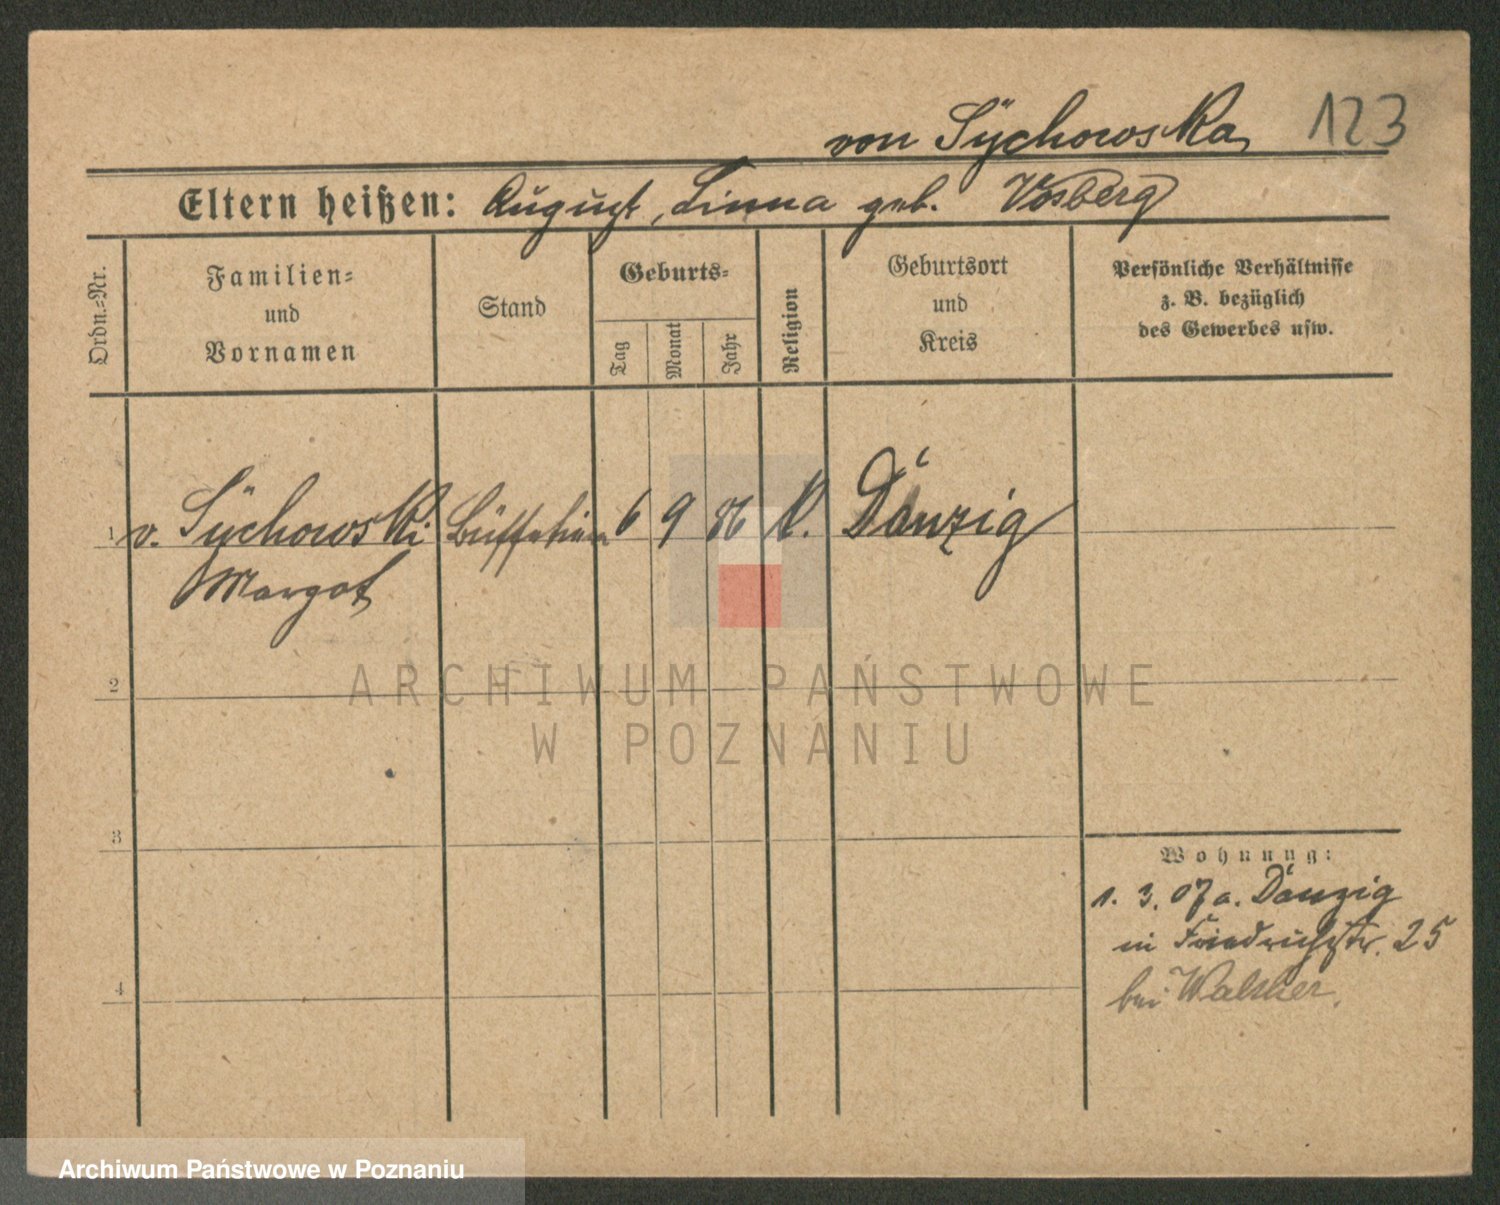 von Sÿchowska, 123
Eltern heißen: August, Linna geb. Vosberg
Ordn.-Nr.
Familien-
und
Vornamen
Stand
Geburts-
Tag
Monat
Jahr
Religion
Geburtsort
und
Kreis
Persönliche Verhältnisse
z. B. bezüglich
des Gewerbes usw.
1 v. Sÿchowski 6 9 86 K. Danzig
Margot
ARCHIWUM PAŃSTWOWE
W POZNANIU
2
3
4
Wohnung:
1. 3. 07 a. Danzig
in Friedrichstr. 25
bei
Archiwum Państwowe w Poznaniu